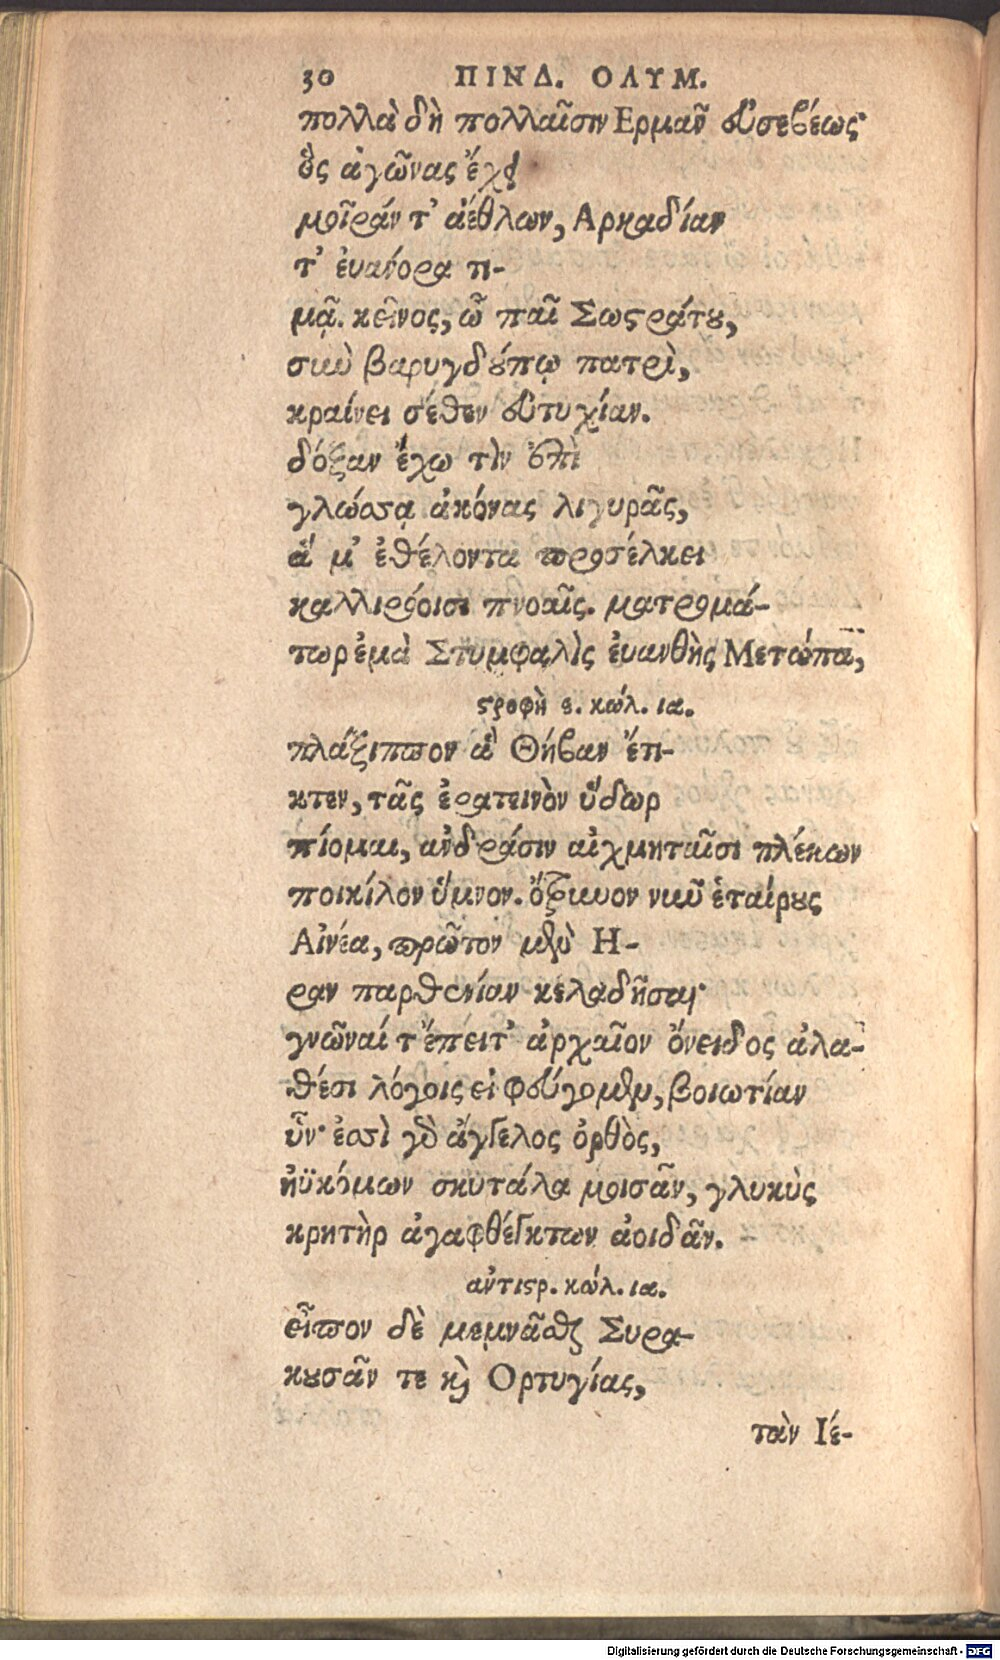 30 ΠΙΝΔ. ΟΛΥΜ.
πολλὰ δὴ πολλαῖσιν Ερμᾶν εὐσεβέως·
ὃς ἀγῶνας ἔχει
μοῖράν τ' ἀέθλων, Αρκαδίαν
τ' ἐυάνορα τι-
μᾷ. κεῖνος, ὦ παῖ Σωστράτου,
σὺν βαρυγδούπῳ πατρὶ,
κραίνει σέθεν εὐτυχίαν.
δόξαν ἔχω τὶν ἐπὶ
γλώσσᾳ ἀκόνας λιγυρᾶς,
ἅ μ' ἐθέλοντα προσέλκει
καλλιρόοισι πνοαῖς. ματρομά-
τωρ ἐμὰ Στυμφαλὶς ἐυανθὴς Μετώπα,
στροφὴ ε. κώλ. ια.
πλάξιππον ἃ Θήβαν ἔτι-
κτεν, τᾶς ἐρατεινὸν ὕδωρ
πίομαι, ἀνδράσιν αἰχμηταῖσι πλέκων
ποικίλον ὕμνον. ὄξτυνον νῦν ἑταίρους
Αἰνέα, πρῶτον μὲν Η-
ραν παρθενίαν κελαδῆσαι·
γνῶναί τ' ἔπειτ' ἀρχαῖον ὄνειδος ἀλα-
θέσι λόγοις εἰ φεύγομεν, βοιωτίαν
ὗν· ἐσσὶ γὰρ ἄγγελος ὀρθὸς,
ἠϋκόμων σκυτάλα μοισᾶν, γλυκὺς
κρητὴρ ἀγαφθέγκτων ἀοιδᾶν.
ἀντιστρ. κώλ. ια.
εἶπον δὲ μεμνᾶσθαι Συρα-
κουσᾶν τε καὶ Ορτυγίας,
τὰν Ιέ-
Digitalisierung gefördert durch die Deutsche Forschungsgemeinschaft - DFG